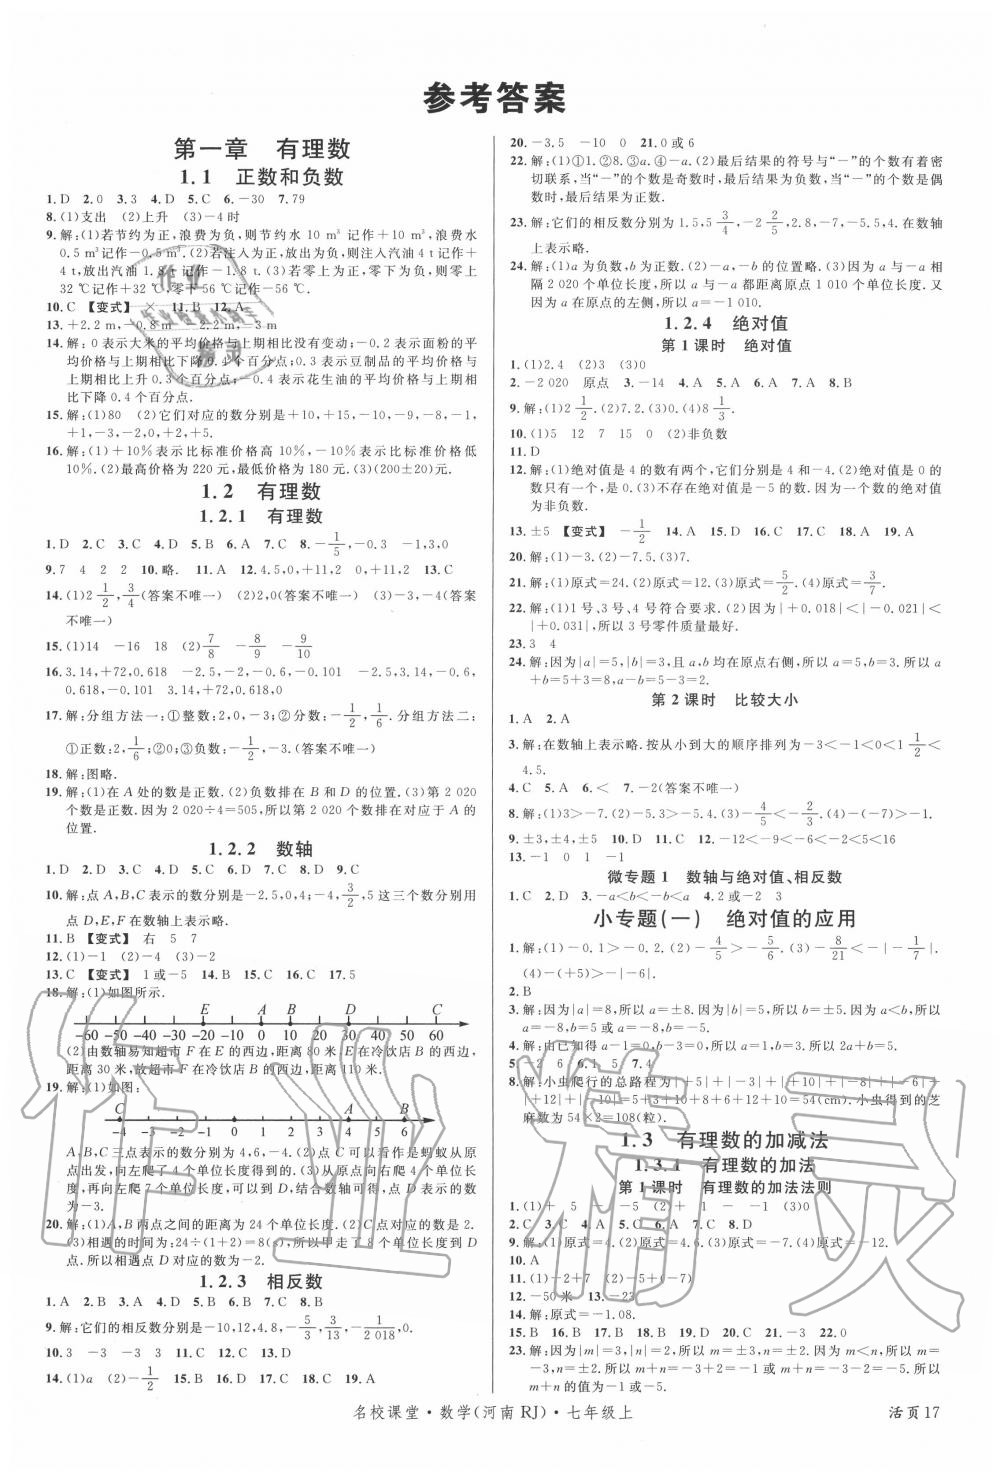 参考答案
第一章 有理数
1.1 正数和负数
1.D 2.0 3.3 4.D 5.C 6.-30 7.79
8.(1)支出 (2)上升 (3)-4时
9.解:(1)若节约为正,浪费为负,则节约水 10 m³ 记作+10 m³,浪费水
0.5 m³记作-0.5 m³.(2)若注入为正,放出为负,则注入汽油4 t记作+
4 t,放出汽油 1.8 t 记作-1.8 t.(3)若零上为正,零下为负,则零上
32 ℃记作+32 ℃,零下56 ℃记作-56 ℃.
10.C 【变式】 × 11.B 12.A
13.+2.2 m,-0.8 m -2.2 m,-3 m
14.解:0表示大米的平均价格与上期相比没有变动;-0.2表示面粉的平
均价格与上期相比下降0.4个百分点;0.3表示豆制品的平均价格与
上期相比上升0.3个百分点;-0.4表示花生油的平均价格与上期相
比下降0.4个百分点.
15.解:(1)80 (2)它们对应的数分别是+10,+15,-10,-9,-8,-1,
+1,-3,-2,0,+2,+5.
16.解:(1)+10%表示比标准价格高10%,-10%表示比标准价格低
10%.(2)最高价格为220元,最低价格为180元.(3)(200±20)元.
1.2 有理数
1.2.1 有理数
1.D 2.C 3.C 4.D 5.B 6.A 7.C 8.-1/5,-0.3 -1,3,0
9.7 4 2 2 10.略. 11.A 12.4.5,0,+11,2 0,+11,2 13.C
14.(1)2 1/2,3/4(答案不唯一) (2)2,0(答案不唯一) (3)-3,-4(答案
不唯一)
15.(1)14 -16 18 (2)7/8 -8/9 -9/10
16.3.14,+72,0.618 -2.5,-2,-0.6,-0.101 -2.5,3.14,-0.6,
0.618,-0.101 3.14,+72,0.618,0
17.解:分组方法一:①整数:2,0,-3;②分数:-1/2,1/6.分组方法二:
①正数:2,1/6;②0;③负数:-1/2,-3.(答案不唯一)
18.解:图略.
19.解:(1)在A处的数是正数.(2)负数排在B和D的位置.(3)第2 020
个数是正数.因为2 020÷4=505,所以第2 020个数排在对应于A的
位置.
1.2.2 数轴
1.D 2.D 3.C 4.C 5.D 6.B 7.C 8.D 9.C
10.解:点A,B,C表示的数分别是-2.5,0,4;-4,3/2,5这三个数分别用
点D,E,F在数轴上表示略.
11.B 【变式】 右 5 7
12.(1)-1 (2)-4 (3)-2
13.C 【变式】 1或-5 14.B 15.C 16.C 17.5
18.解:(1)如图所示.
E A B D C
-60 -50 -40 -30 -20 -10 0 10 20 30 40 50 60
(2)由数轴易知超市F在E的西边,距离80米,E在冷饮店B的西边,
距离30米,故超市F在冷饮店B的西边,距离110米.
19.解:(1)如图:
C A B
-4 -3 -2 -1 0 1 2 3 4 5 6
A,B,C三点表示的数分别为4,6,-4.(2)点C可以看作是蚂蚁从原
点出发,向左爬了4个单位长度得到的.(3)从原点向右爬4个单位长
度,再向左爬7个单位长度可以得到D,结合数轴可得,点D表示的数
为-3.
20.解:(1)A,B两点之间的距离为24个单位长度.(2)点C对应的数是2.
(3)相遇的时间为:24÷(1+2)=8(s),所以甲走了8个单位长度到D
点.所以相遇点D对应的数为-2.
1.2.3 相反数
1.A 2.B 3.A 4.D 5.B 6.D 7.C 8.B
9.解:它们的相反数分别是-10,12,4.8,-5/3,3/13,-1/2 018,0.
10.3 -3 -3 3 11.C 12.C 13.D
14.(1)a (2)-1/2 15.B 16.B 17.B 18.C 19.A
20.-3.5 -10 0 21.0或6
22.解:(1)①1.②8.③a.④-a.(2)最后结果的符号与“-”的个数有着密
切联系,当“-”的个数是奇数时,最后结果为负数,当“-”的个数是偶
数时,最后结果为正数.
23.解:它们的相反数分别为1.5,5 3/4,-2 2/5,2.8,-7,-5.5,4.在数轴
上表示略.
24.解:(1)a为负数,b为正数.(2)-a,-b的位置略.(3)因为a与-a相
隔2 020个单位长度,所以a与-a都距离原点1 010个单位长度.又
因为a在原点的左侧,所以a=-1 010.
1.2.4 绝对值
第1课时 绝对值
1.(1)2.4 (2)3 (3)0
2.-2 020 原点 3.-14 4.A 5.A 6.A 7.A 8.B
9.解:(1)2 1/2.(2)7.2.(3)0.(4)8 1/3.
10.(1)5 12 7 15 0 (2)非负数
11.D
12.解:(1)绝对值是4的数有两个,它们分别是4和-4.(2)绝对值是0的
数只有一个,是0.(3)不存在绝对值是-5的数.因为一个数的绝对值
为非负数.
13.±5 【变式】 -1/2 14.A 15.D 16.C 17.C 18.A 19.A
20.解:(1)-3.(2)-7.5.(3)7.
21.解:(1)原式=24.(2)原式=12.(3)原式=5/2.(4)原式=3/7.
22.解:(1)1号、3号、4号符合要求.(2)因为|+0.018|<|-0.021|<
|+0.031|,所以3号零件质量最好.
23.3 4
24.解:因为|a|=5,|b|=3,且a,b均在原点右侧,所以a=5,b=3.所以a
+b=5+3=8,a-b=5-3=2.
第2课时 比较大小
1.A 2.A
3.解:在数轴上表示略.按从小到大的顺序排列为-3<-1<0<1 1/2<
4.5.
4.C 5.A 6.< 7.-2(答案不唯一)
8.解:(1)3>-7.(2)-5.3>-5.4.(3)-4/5<-2/3.(4)-(-7)>-1.
9.±3,±4,±5 10.D 11.C 12.-12<-9<-6<-2<5<16
13.-1 0 1 -1
微专题1 数轴与绝对值、相反数
1.C 2.D 3.-a<b<-b<a 4.2或-2 3
小专题(一) 绝对值的应用
1.解:(1)-0.1>-0.2.(2)-4/5>-5/6.(3)-8/21<-|-1/7|.
(4)-(-5)>-|-6|.
2.B
3.解:因为|a|=8,所以a=±8.因为|b|=5,所以b=±5.因为a<b,所以
a=-8,b=5或a=-8,b=-5.
4.解:由已知得a-1=0,b-3=0,所以a=1,b=3.所以2a+b=5.
5.-2 6 6.1 5 7.4
8.解:小虫爬行的总路程为|+5|+|-3|+|+10|+|-8|+|-6|+
|+12|+|-10|=5+3+10+8+6+12+10=54(cm).小虫得到的芝
麻数为54×2=108(粒).
1.3 有理数的加减法
1.3.1 有理数的加法
第1课时 有理数的加法法则
1.(1)+ 5 - -5 (2)+ 1 - -1 (3)0
2.C 3.C 4.B 5.C 6.B 7.C 8.D
9.解:(1)原式=4.(2)原式=4.(3)原式=-7.(4)原式=-12.
10.A
11.(1)-2+7 (2)-5+(-7)
12.-50米 13.-23
14.解:原式=-1.08.
15.B 16.B 17.B 18.B 19.D 20.C 21.-3 22.0
23.解:因为|m|=3,|n|=2,所以m=±3,n=±2.因为m<n,所以m=
-3,n=±2.所以m+n=-3+2=-1或m+n=-3-2=-5.所以
m+n的值为-1或-5.
名校课堂·数学(河南RJ)·七年级上
活页17
作业精灵